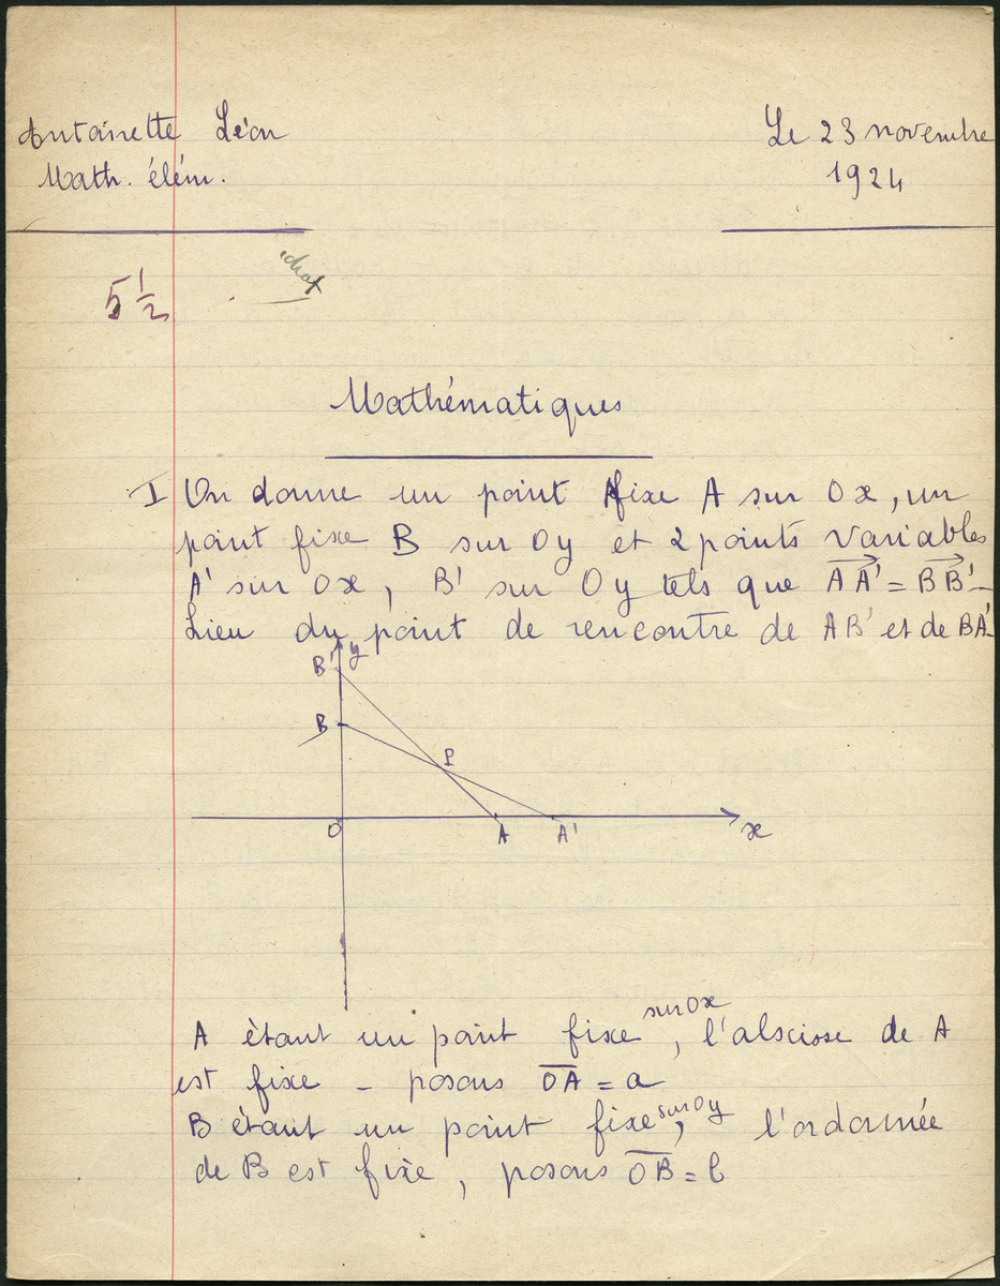 Antoinette Léon
Le 23 novembre
Math. élém.
1924
5 1/2
Mathématiques
I On donne un point fixe A sur Ox, un
point fixe B sur Oy et 2 points variables
A' sur Ox, B' sur Oy tels que AA' = BB'
Lieu du point de rencontre de AB' et de BA'
B' y
B
P
O A A' x
A étant un point fixe sur Ox, l'abscisse de A
est fixe - posons OA = a
B étant un point fixe sur Oy, l'ordonnée
de B est fixe, posons OB = b